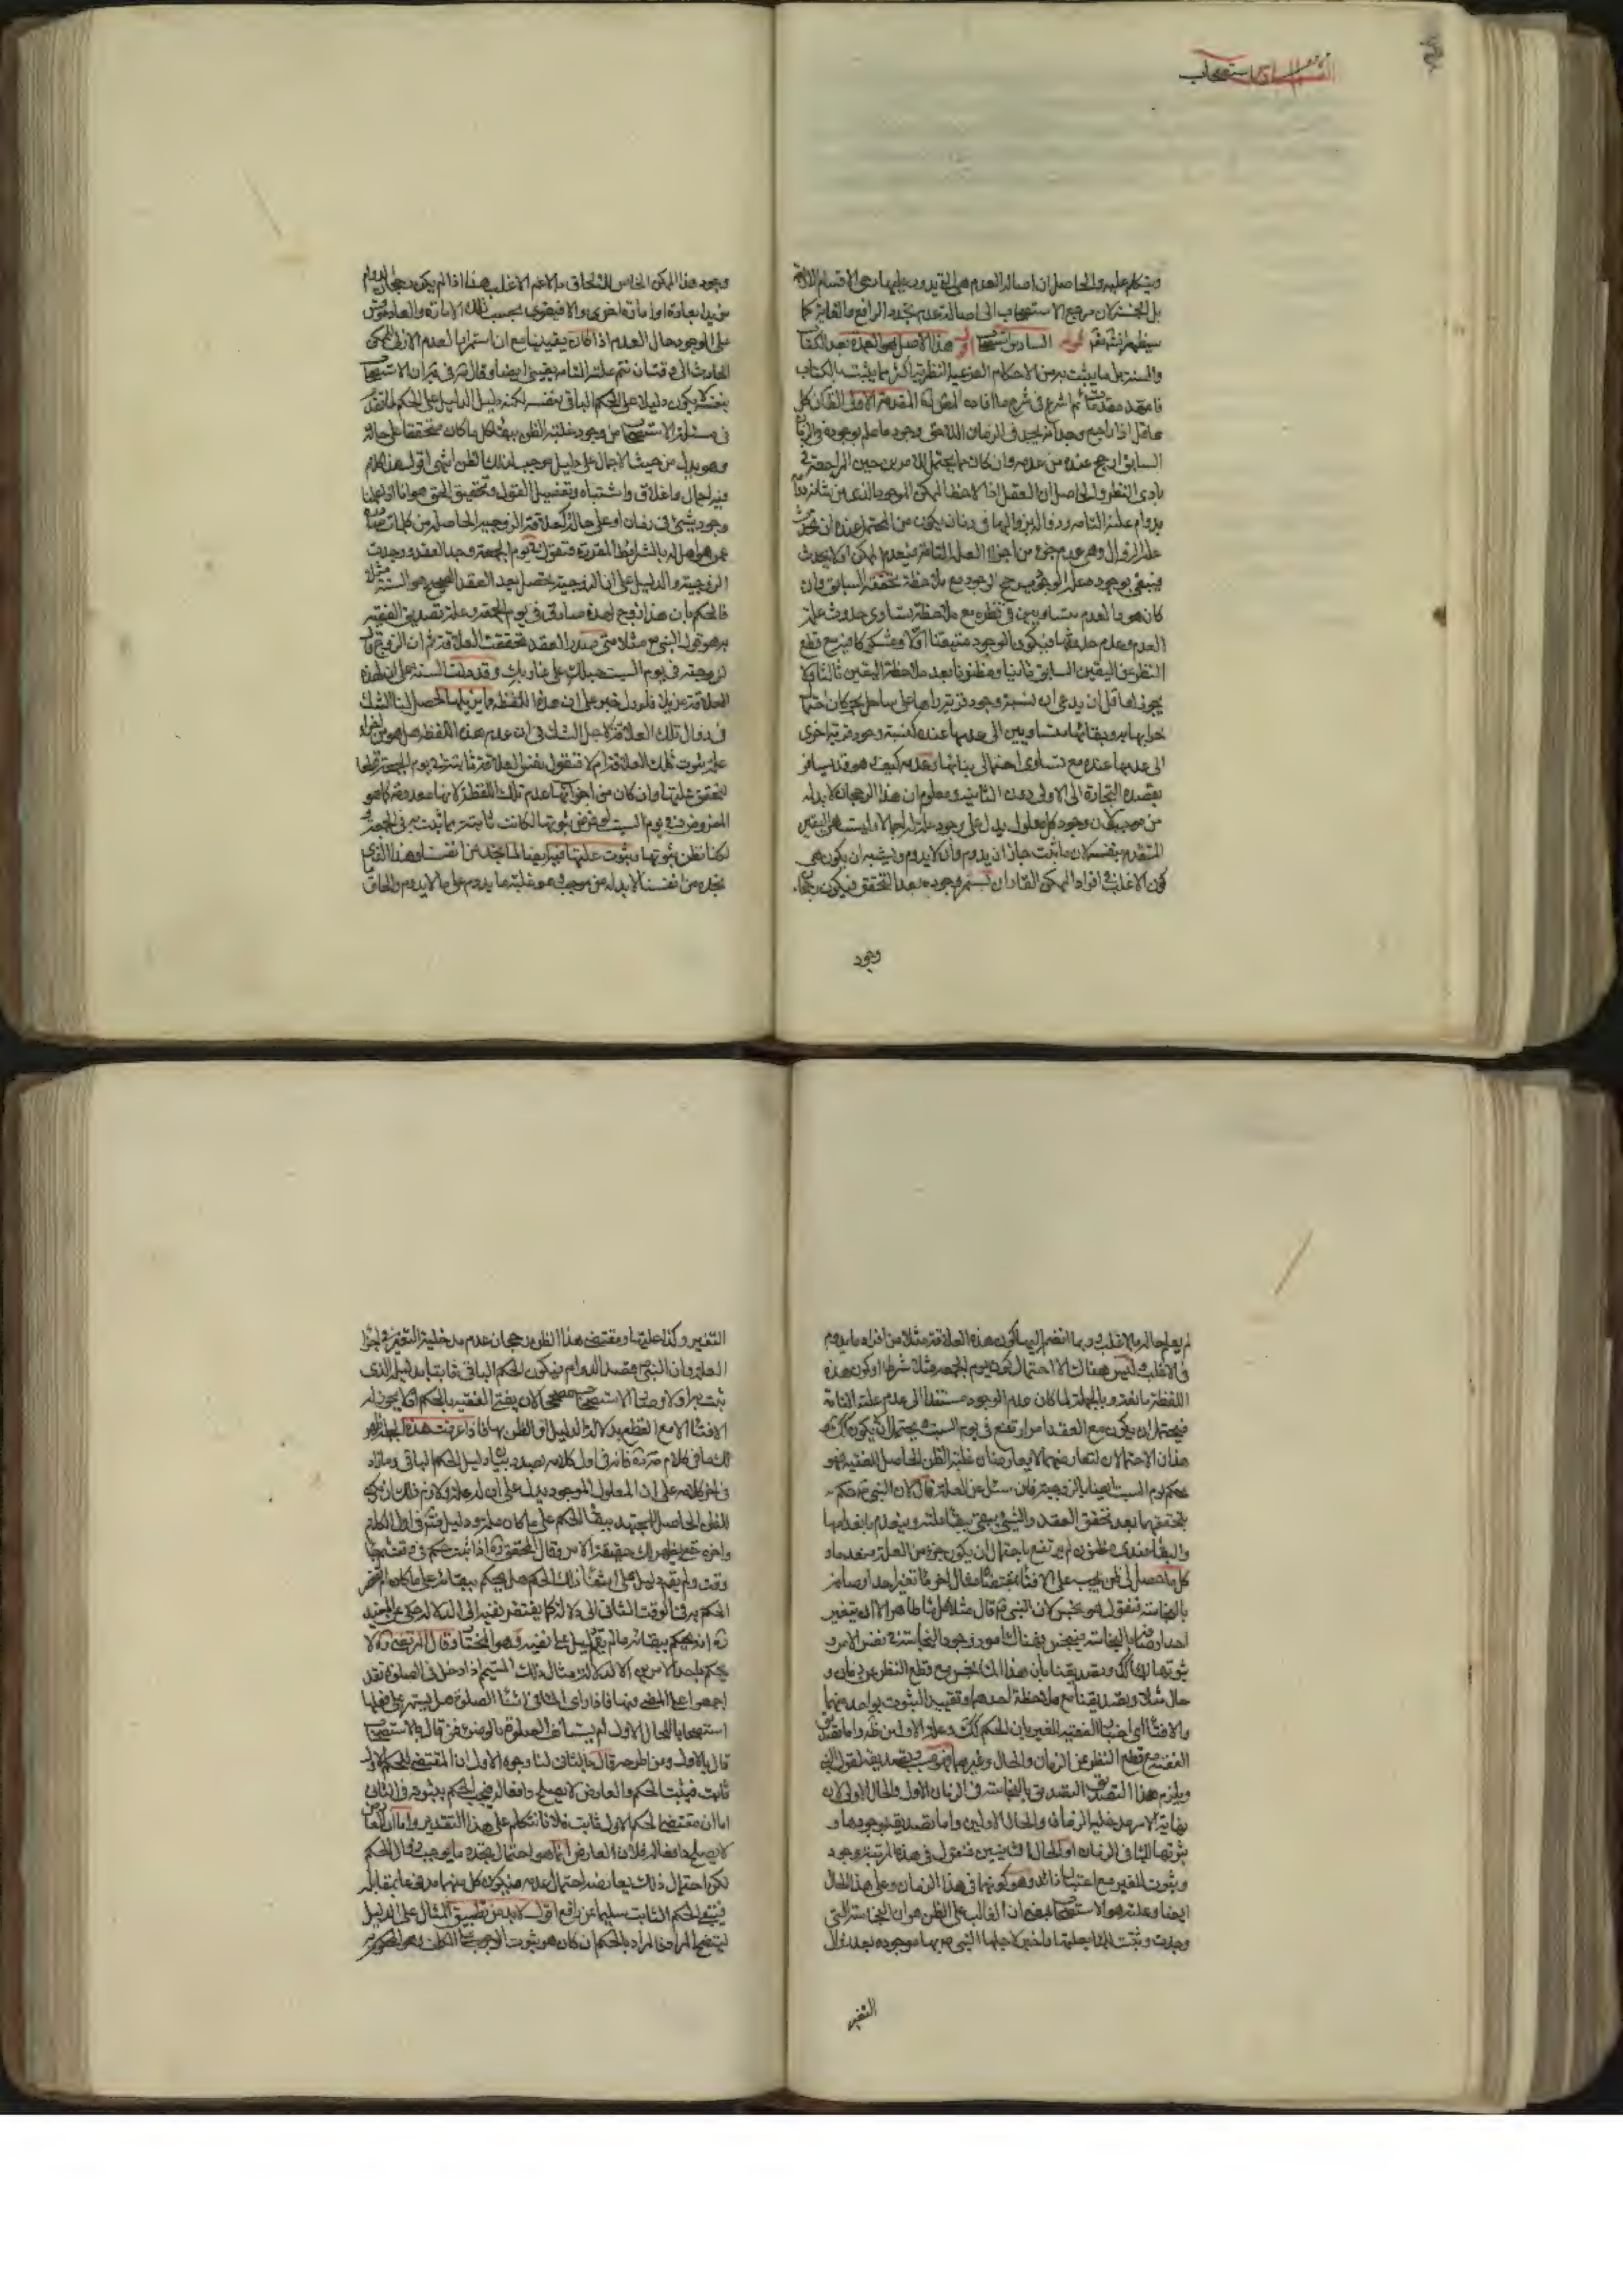 القسم السادس استصحاب
ويتكلم عليه والحاصل ان اصالة العدم هي التي يدور عليها رحى الاقسام الثلثة
بل الخمسة لان مرجع الاستصحاب الى اصالة عدم تجدد الرافع والمغاير كما
سيظهر السادس استصحاب هذا الاصل هو العمدة بعد الكتاب
والسنة بل ما يثبت به من الاحكام الفرعية النظرية اكثر مما يثبت بالكتاب
فامهد مقدمات ثم اشرع في شرح ما افاده المقدمة الاولى ان كل
عاقل اذا راجع وجدانه يجد في الزمان اللاحق وجود ما علم بوجوده في الزمان
السابق ارجح عنده من عدمه وان كان مما يحتمل الامرين حين المراجعة في
بادى النظر والحاصل ان العقل اذا لاحظ الممكن الموجود الذي من شانه
يدوم علته التامة وزوالها في زمان يكون من المحتمل عنده ان يحدث
علة الزوال وهي عدم جزء من اجزاء العلة التامة فينعدم الممكن او لا يحدث
فيبقى بوجود علة الوجود يرجح الوجود مع ملاحظة تحققه السابق وان
كان هو والعدم متساويين في نظره مع ملاحظة تساوي حدوث علة
العدم وعدم حدوثها فيكون الوجود متيقنا اولا ومشكوكا فيه مع قطع
النظر عن اليقين السابق ثانيا ومظنونا بعد ملاحظة اليقين ثالثا ولا
يجوز لعاقل ان يدعي ان نسبة وجود قرية راها على ساحل بحر كان احتمال
خرابها وبقائها متساويين الى عدمها عنده كنسبة وجود قرية اخرى
الى عدمها عنده مع تساوى احتمالى بنائها وعدمه كيف وهو قد يسافر
بقصد التجارة الى الاولى دون الثانية ومعلوم ان هذا الرجحان لا بد له
من موجب لان وجود كل معلول يدل على وجود علة له اجمالا وليست هي اليقين
المتقدم بنفسه لان ما ثبت جاز ان يدوم وان لا يدوم ويشبه ان يكون هي
كون الاغلب في افراد الممكن القار ان يستمر وجوده بعد التحقق فيكون رجحان
وجود
وجود هذا الممكن الخاص للالحاق بالاعم الاغلب هذا اذا لم يكن رجحان الدوام
مؤيدا بعادة او امارة اخرى والا فيقوى بحسب تلك الامارة والعادة وقس
على الوجود حال العدم اذا كان يقينيا مع ان استمرار العدم الازلي للممكن
الحادث الى وقت ان تتم علته التامة يقيني ايضا وقال في ان الاستصحاب
بنفسه لا يكون دليلا على الحكم الباقي بنفسه لكنه دليل الدليل على الحكم لما تقدم
في مسئلة الاستصحاب من وجود غلبة الظن ببقاء كل ما كان متحققا على حاله
وهو يدل من حيث الاجمال على دليل موجب لذلك الظن انتهى اقول هذا كلام
فيه اجمال واغلاق واشتباه وتفصيل القول وتحقيق الحق هو انا اذا علمنا
وجود شيئ في زمان او على حال كعلاقة الزوجية الحاصلة من كلمات
عن هو اهله بالشرايط المقررة فنقول في يوم الجمعة وجد العقد ووجدت
الزوجية والدليل على ان الزوجية يحصل بعد العقد الصحيح هو السنة مثلا
فالحكم بان هذا زوج لهذه صادق في يوم الجمعة وعلة تصديق الفقيه
به هو قول النبي ص مثلا متى صدر العقد تحققت العلاقة ثم ان الزوج قال
لزوجته في يوم السبت حبلك على غاربك وقد دلت السنة على ان هذه
العلاقة مزيلا فلو دل خبر على ان هذه اللفظة يزيلها الحصل لنا الشك
في زوال تلك العلاقة لاجل الشك في ان عدم هذه اللفظة هل هو من اجزاء
علة ثبوت تلك العلاقة ام لا فنقول نفس العلاقة ثابتة في يوم الجمعة قطعا
لتحقق علتها وان كان من اجزائها عدم تلك اللفظة لانها معدومة كما هو
المفروض وفي يوم السبت لو فرض ثبوتها لكانت ثابتة بما ثبت به في الجمعة
لكنا نظن ثبوتها وثبوت علتها فيه ايضا لما نجد من انفسنا وهذا الذي
نجده من انفسنا لا بد له من موجب وهو غلبة ما يدوم على ما لا يدوم والحاق
لم يعلم حاله بالاغلب وربما انضم اليها كون هذه العلاقة مثلا من افراد ما يدوم
في الاغلب وليس هناك الا احتمال كون يوم الجمعة مثلا شرطا او كون هذه
اللفظة مانعة وبالجملة لما كان عدم الوجود مستندا الى عدم علته التامة
فيحتمل ان يكون مع العقد امر ارتفع في يوم السبت ويحتمل ان لا يكون كك
هذان الاحتمالان لتعارضهما لا يعارضان غلبة الظن الحاصل للفقيه فهو
يحكم يوم السبت ايضا بالزوجية فان سئل عن العلة قال لان النبي ص حكم
بتحققها بعد تحقق العقد والشيئ يبقى ببقاء علته وينعدم بانعدامها
والبقاء عندي مظنون لم يرتفع باحتمال ان يكون جزء من العلة منعدما و
كل ما حصل لي ظن يجب على الافتاء بمقتضاه مثال اخر ما تغير احد اوصافه
بالنجاسة فنقول هو نجس لان النبي ص قال مثلا هل شئ طاهر الا ان يتغير
احد اوصافه بالنجاسة فينجس فهناك امور وجود النجاسة في نفس الامر و
ثبوتها لذلك وتصديقنا بان هذا الماء نجس مع قطع النظر عن زمان و
حال مثلا وتصديقنا مع ملاحظة احدهما وتقييد الثبوت بواحد منهما
والافتاء اي اخبار الفقيه الغير بان الحكم كك وعلة الاولين ظاهرة واما تصديق
الفقيه مع قطع النظر عن الزمان والحال وغيرهما فموجب تصديقه لقول النبي
ويلزم هذا التصديق التصديق بالنجاسة في الزمان الاول والحال الاولى لان
نهاية الامر مدخلية الزمان والحال الاولين واما تصديقه بوجودها و
ثبوتها للماء في الزمان او الحال الثانيين فنقول في هذه المرتبة وجود
وثبوت للغير مع اعتبار زائد وهو كونهما في هذا الزمان وعلى هذا الحال
ايضا وعلته هو الاستصحاب بمعنى ان الغالب على الظن هو ان النجاسة التي
وجدت وثبتت للماء بعلتها واخبر لاجلها النبي ص بها موجودة بعد زوال
التغير
التغير وكذا علتها ومقتضى هذا الظن رجحان عدم مدخلية التغير في اجزاء
العلة وان النبي ص قصد الدوام فيكون الحكم الباقي ثابتا بدليله الذي
ثبت به اولا وصار الاستصحاب مصححا لان يفتي الفقيه بالحكم اذ لا يجوز له
الافتاء الا مع القطع بدلالة الدليل او الظن بها فاذا عرفت هذه الجملة ظهر
لك ما في كلامه فانه في اول كلامه بصدد بيان دليل الحكم الباقي وما زاد
في اخر كلامه على ان المعلول الموجود يدل على ان له علة ولازم ذلك ان يكون
الظن الحاصل للمجتهد ببقاء الحكم على ما كان علة ودليل فتدبر في اول الكلام
واخره حتى يظهر لك حقيقة الامر وقال المحقق ره اذا ثبت حكم في وقت ثم جاء
وقت ولم يقم دليل على انتفاء ذلك الحكم هل يحكم ببقائه على ما كان ام يفتقر
الحكم به في الوقت الثاني الى دلالة كما يفتقر نفيه الى الدلالة حكى عن المفيد
ره انه يحكم ببقائه ما لم يقم دليل على نفيه وهو المختار وقال المرتضى ره لا
يحكم باحد الامرين الا لدلالة مثال ذلك المتيمم اذا دخل في الصلوة فقد
اجمعوا على المضي فيها فاذا راى الماء في اثناء الصلوة هل يستمر على فعلها
استصحابا للحال الاول ام يستانف الصلوة بالوضوء فمن قال بالاستصحاب
قال بالاول ومن اطرحه قال بالثاني لنا وجوه الاول ان المقتضى للحكم الاول
ثابت فيثبت الحكم والعارض لا يصلح رافعا له فيجب الحكم بثبوته في الثاني
اما ان مقتضى الحكم الاول ثابت فلانا نتكلم على هذا التقدير واما ان العارض
لا يصلح رافعا له فلان العارض انما هو احتمال تجدد ما يوجب زوال الحكم
لكن احتمال ذلك يعارضه احتمال عدمه فيكون كل منهما مدفوعا بمقابله
فيبقى الحكم الثابت سليما عن رافع اقول لا بد من تطبيق المثال على الدليل
ليتضح المراد فالمراد بالحكم ان كان هو ثبوت الوجوب